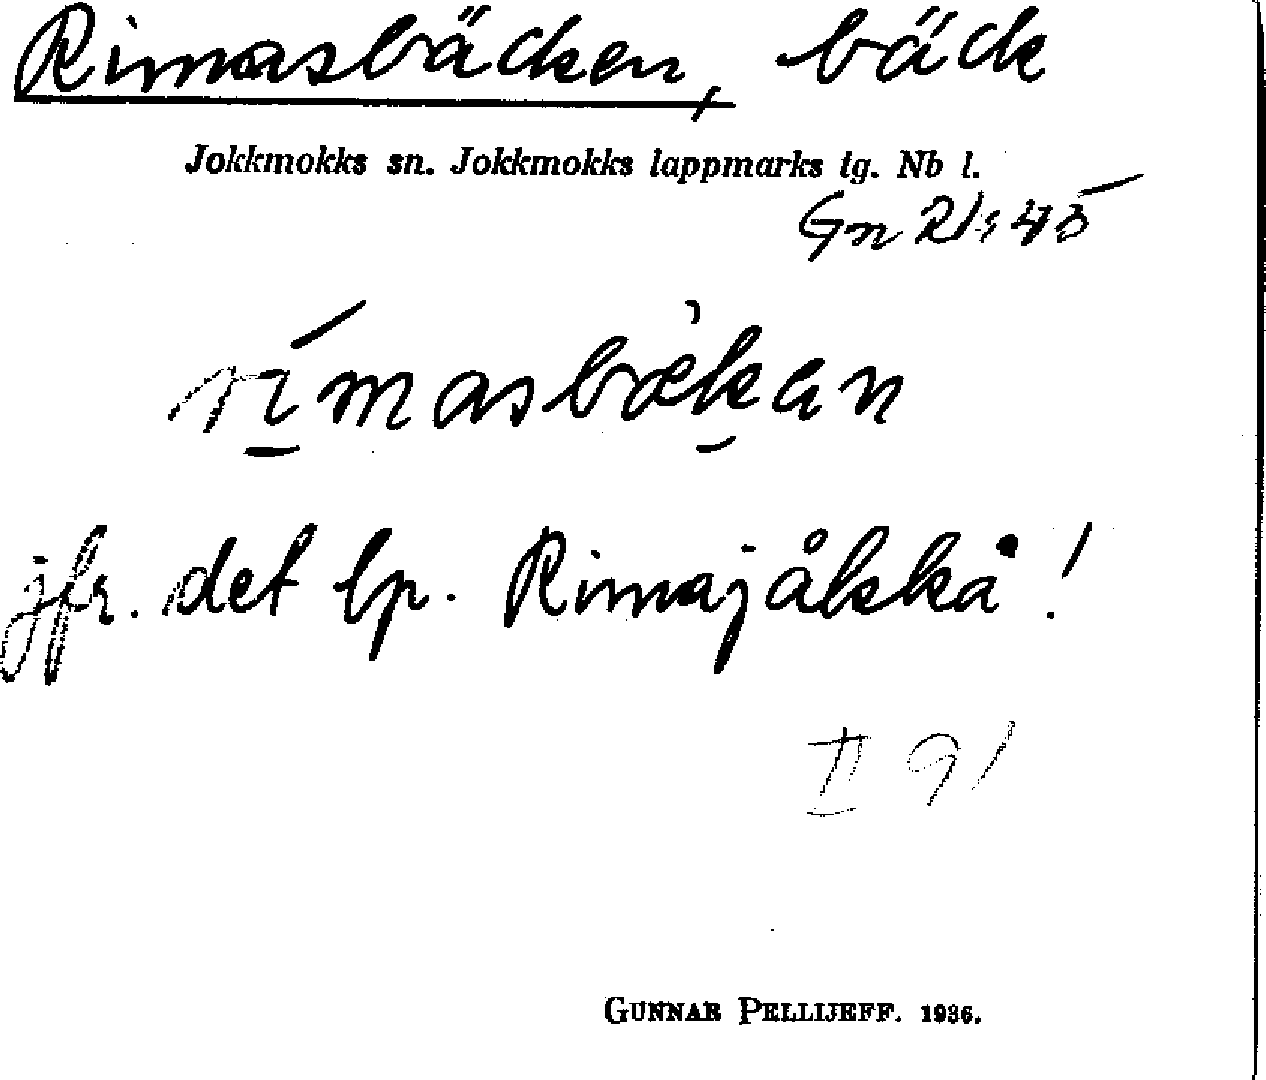 Rimasbäcken, bäck
Jokkmokks sn. Jokkmokks lappmarks tg. Nb l.
Gn 21:45
rí̱masbæ̀ḵan
jfr. det lp. Rimajåkkå!
II 91
GUNNAR PELLIJEFF. 1936.